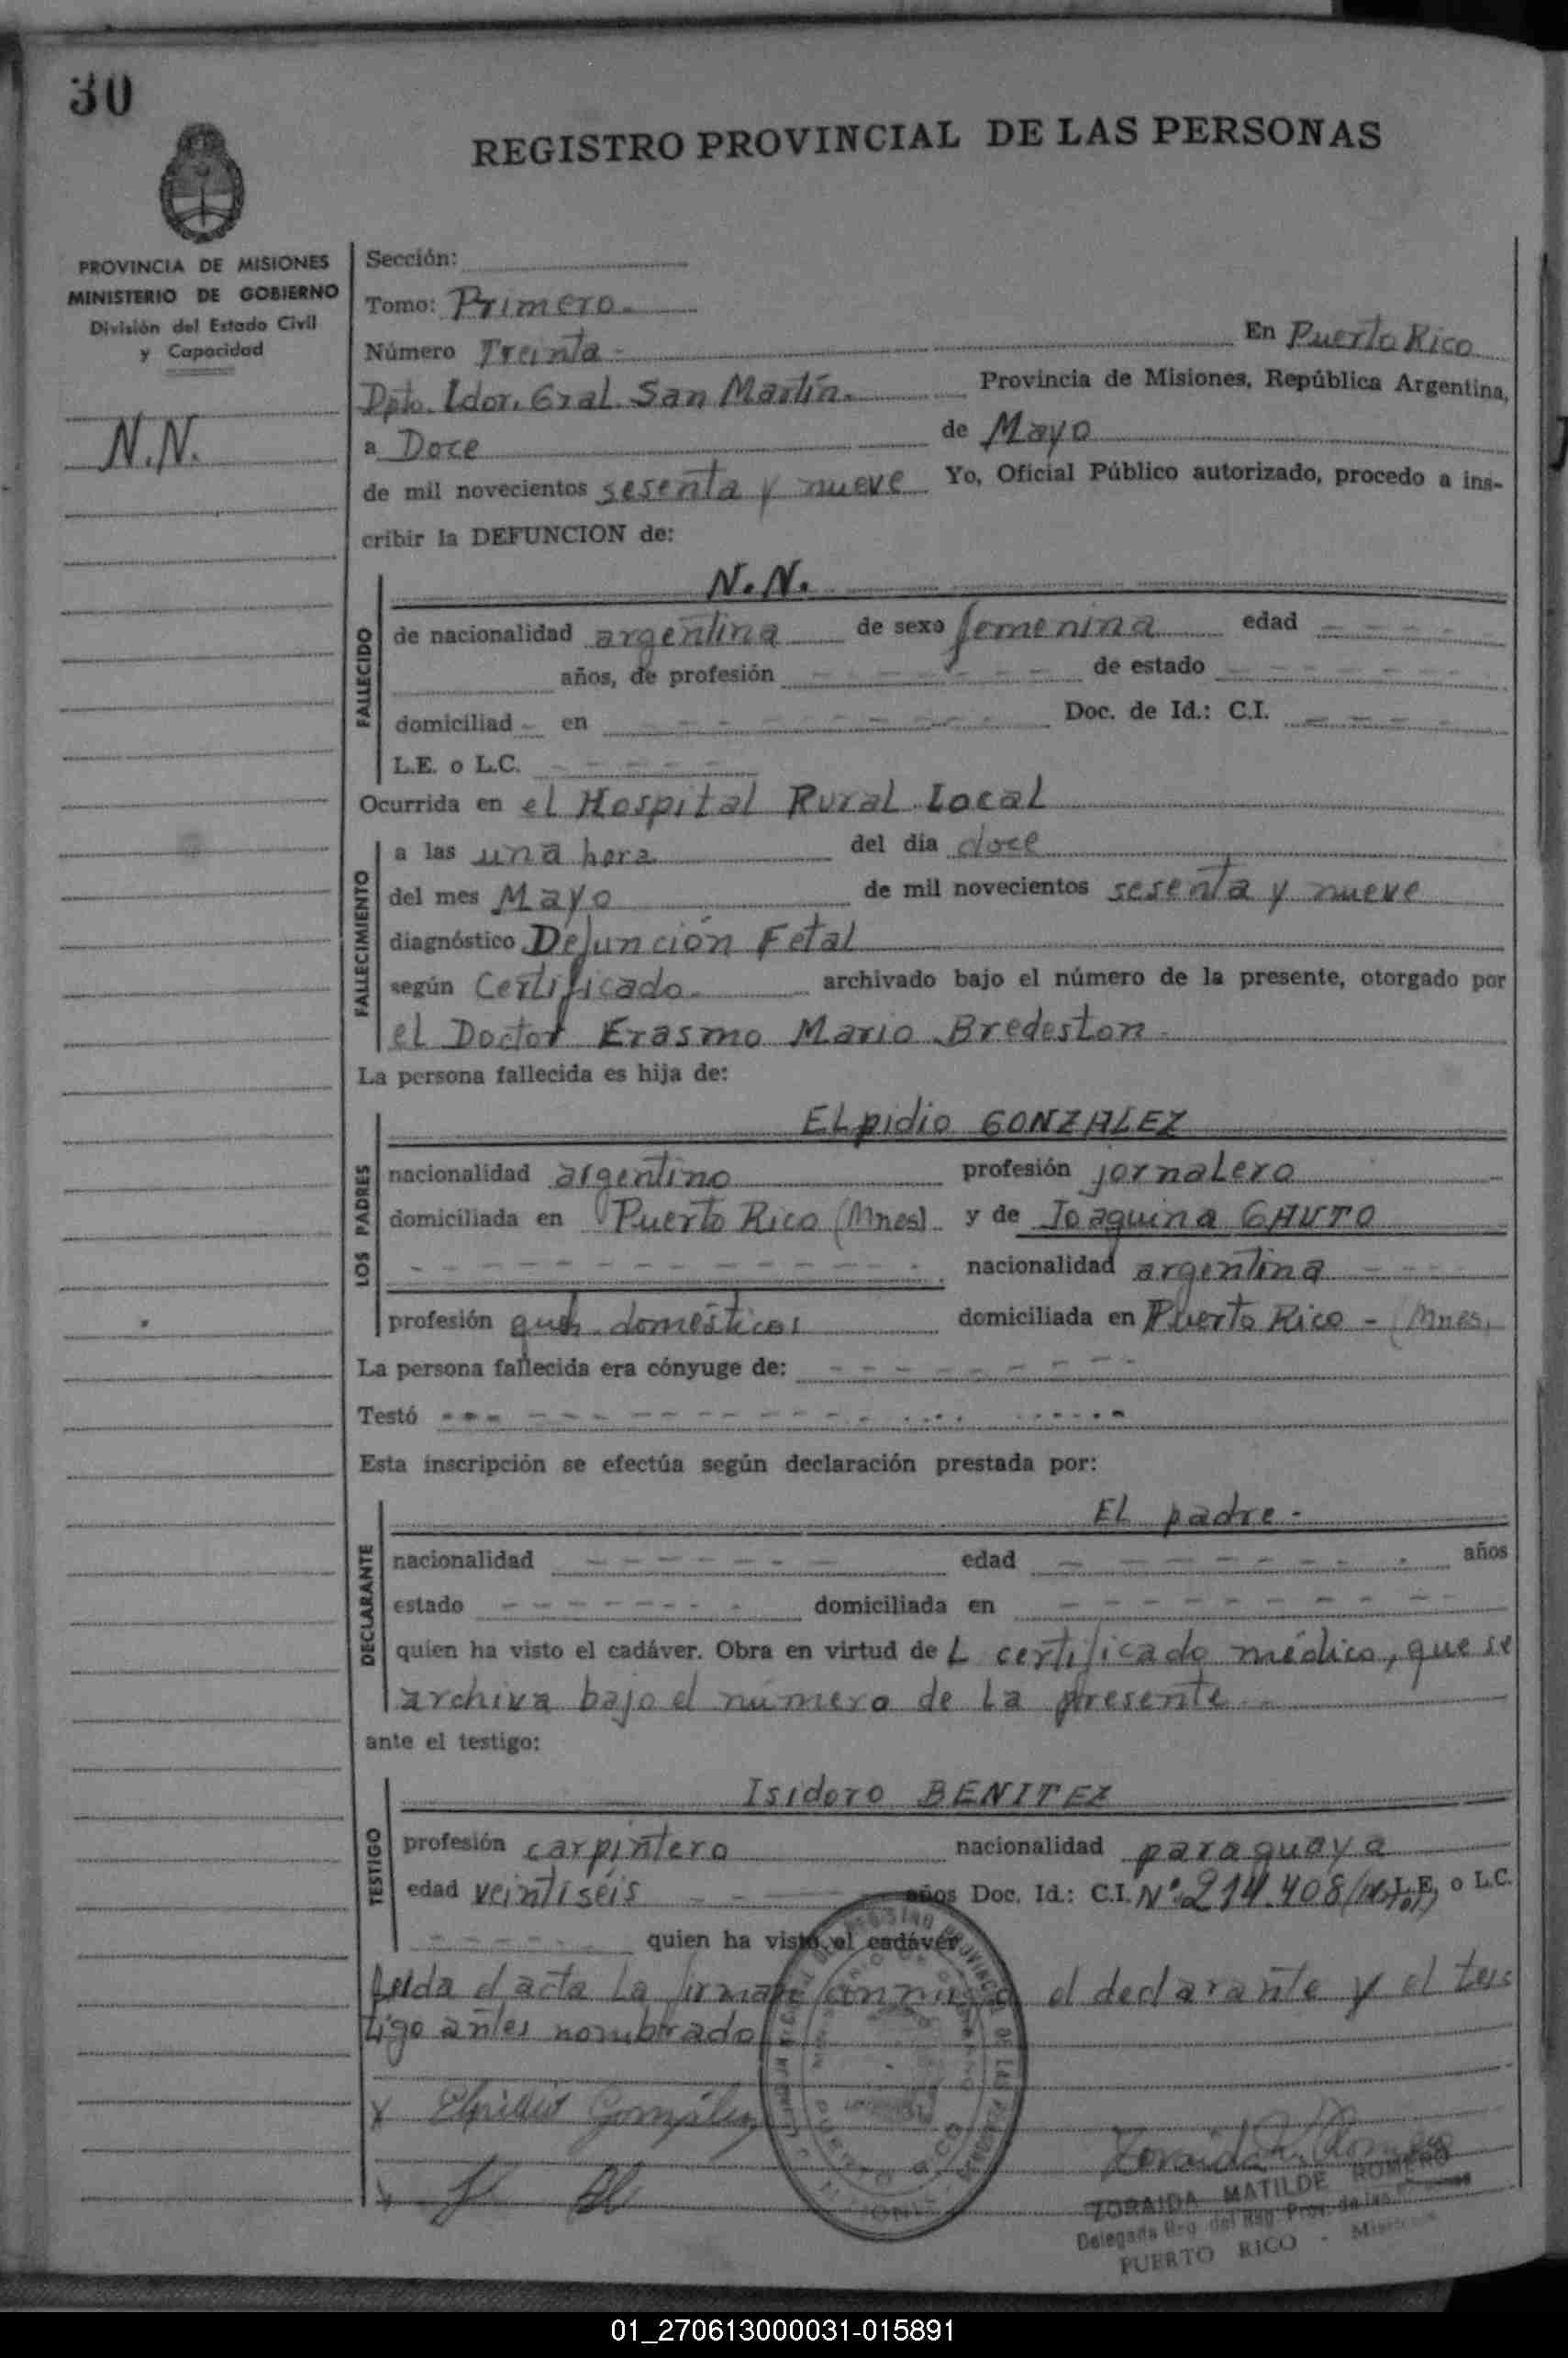 30
REGISTRO PROVINCIAL DE LAS PERSONAS
PROVINCIA DE MISIONES
MINISTERIO DE GOBIERNO
División del Estado Civil
y Capacidad
N.N.
Sección:
Tomo: Primero.
Número Treinta - En Puerto Rico
Dpto. Ldor. Gral. San Martín. Provincia de Misiones, República Argentina,
a Doce de Mayo
de mil novecientos sesenta y nueve Yo, Oficial Público autorizado, procedo a ins-
cribir la DEFUNCION de:
FALLECIDO
N.N.
de nacionalidad argentina de sexo femenina edad - - - - -
años, de profesión - - - - - - de estado - - - - - -
domiciliad - en - - - - - - - - Doc. de Id.: C.I. - - - -
L.E. o L.C. - - - - -
Ocurrida en el Hospital Rural Local
FALLECIMIENTO
a las una hora del día doce
del mes Mayo de mil novecientos sesenta y nueve
diagnóstico Defunción Fetal
según Certificado. archivado bajo el número de la presente, otorgado por
el Doctor Erasmo Mario Bredeston.
La persona fallecida es hija de:
LOS PADRES
ELpidio GONZALEZ
nacionalidad argentino profesión jornaLero
domiciliada en Puerto Rico (Mnes) y de Joaquina GAUTO
- - - - - - - - - - nacionalidad argentina - - - -
profesión queh. domésticos domiciliada en Puerto Rico - (Mnes.
La persona fallecida era cónyuge de: - - - - - - - - -
Testó - - - - - - - - - - - - - - - -
Esta inscripción se efectúa según declaración prestada por:
DECLARANTE
EL padre -
nacionalidad - - - - - - - edad - - - - - - - años
estado - - - - - - - domiciliada en - - - - - - - - -
quien ha visto el cadáver. Obra en virtud de L certificado médico, que se
archiva bajo el número de La presente -
ante el testigo:
TESTIGO
Isidoro BENITEZ
profesión carpintero nacionalidad paraguaya
edad veintiséis - - - años Doc. Id.: C.I. Nº 214.408 L.E. o L.C.
- - - - - - quien ha visto el cadáver
Leida el acta La firman conmigo el declarante y el tes
tigo antes nombrado
x Elpidio González
x
ZORAIDA MATILDE ROMERO
Delegada Reg. del Reg. Prov. de las
PUERTO RICO - Misiones
01_270613000031-015891